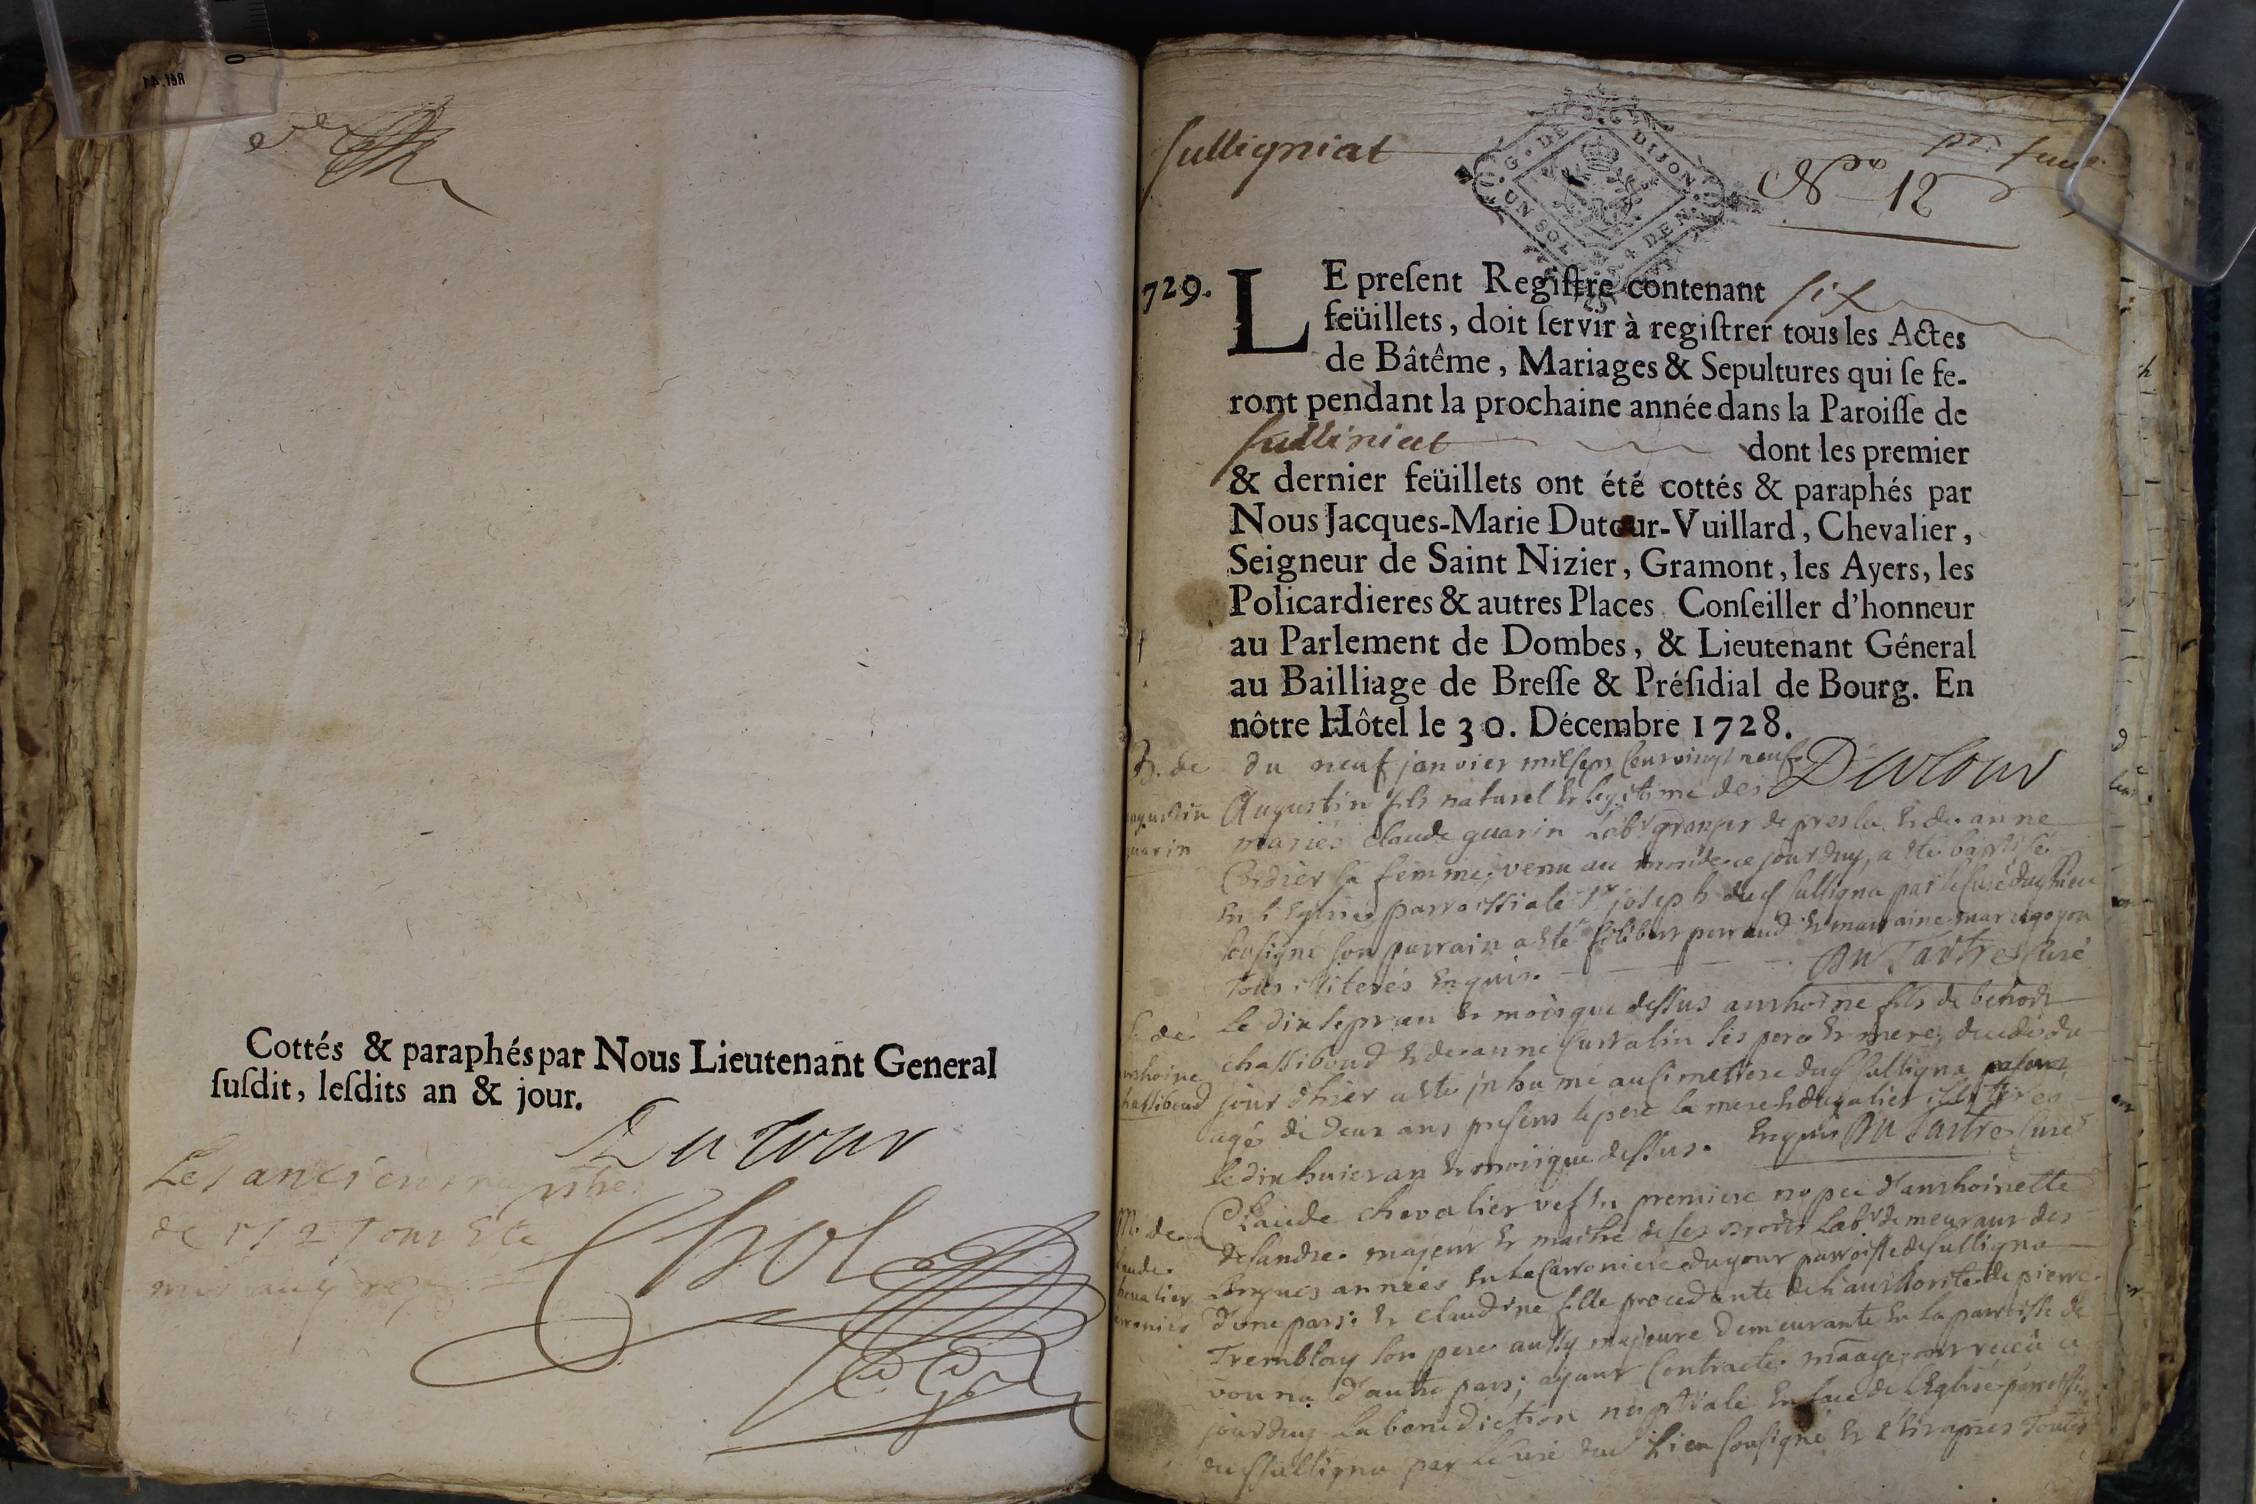 Cottés & paraphés par Nous Lieutenant General
susdit, lesdits an & jour.
Dutour
Les anciens
de 1712 sont Este
mis au
Chol
sulligniat
G. DE DIJON
UN SOL 4 DEN.
No 12
1729. LE present Registre contenant six
feüillets, doit servir à registrer tous les Actes
de Bâtême, Mariages & Sepultures qui se fe-
ront pendant la prochaine année dans la Paroisse de
sulliniat dont les premier
& dernier feüillets ont été cottés & paraphés par
Nous Jacques-Marie Dutour-Vuillard, Chevalier,
Seigneur de Saint Nizier, Gramont, les Ayers, les
Policardieres & autres Places Conseiller d'honneur
au Parlement de Dombes, & Lieutenant Géneral
au Bailliage de Bresse & Présidial de Bourg. En
nôtre Hôtel le 30. Décembre 1728.
Dutour
B. de
augustin
guarin
du neuf janvier mil sept cent vingt neuf
Augustin fils naturel & legitime des
mariés claude guarin lab granger de & de anne
Cordier sa femme, venu au monde ce jourduy, a été baptisé
En l'Eglise parroissiale st joseph dud sulligna par le Curé dud lieu
sousigné son parrain a été filibert perraud & marraine marie goyon
Tous illiterés Enquis. Du Tartre Curé
S. de
anthoine
chassiboud
le dix sept an & mois que dessus anthoine fils de benoit
chassiboud & de anne ses pere & mere, decedé du
jour d'hier a été inhumé au simetiere dud sulligna
agé de deux ans presens le pere la mere & illiteres
Enquis Du Tartre Curé
le dix huict an & mois que dessus.
M. de
claude
chevalier
Claude chevalier vef En premiere nopce d'anthoinette
delandre majeur & maitre de ses droits lab demeurant des
longues années En la Carroniere parroisse de sulligna
d'une part: & claudine fille procedante de l'authorité de pierre
Tremblay son pere aussy majeure demeurante En la parroisse de
vonna d'autre part; ayant Contracté mariage, ont receu ce
jourduy la benediction nuptiale En face de l'Eglise
dud sulligna par le Curé dud lieu sousigné & apres Toutes